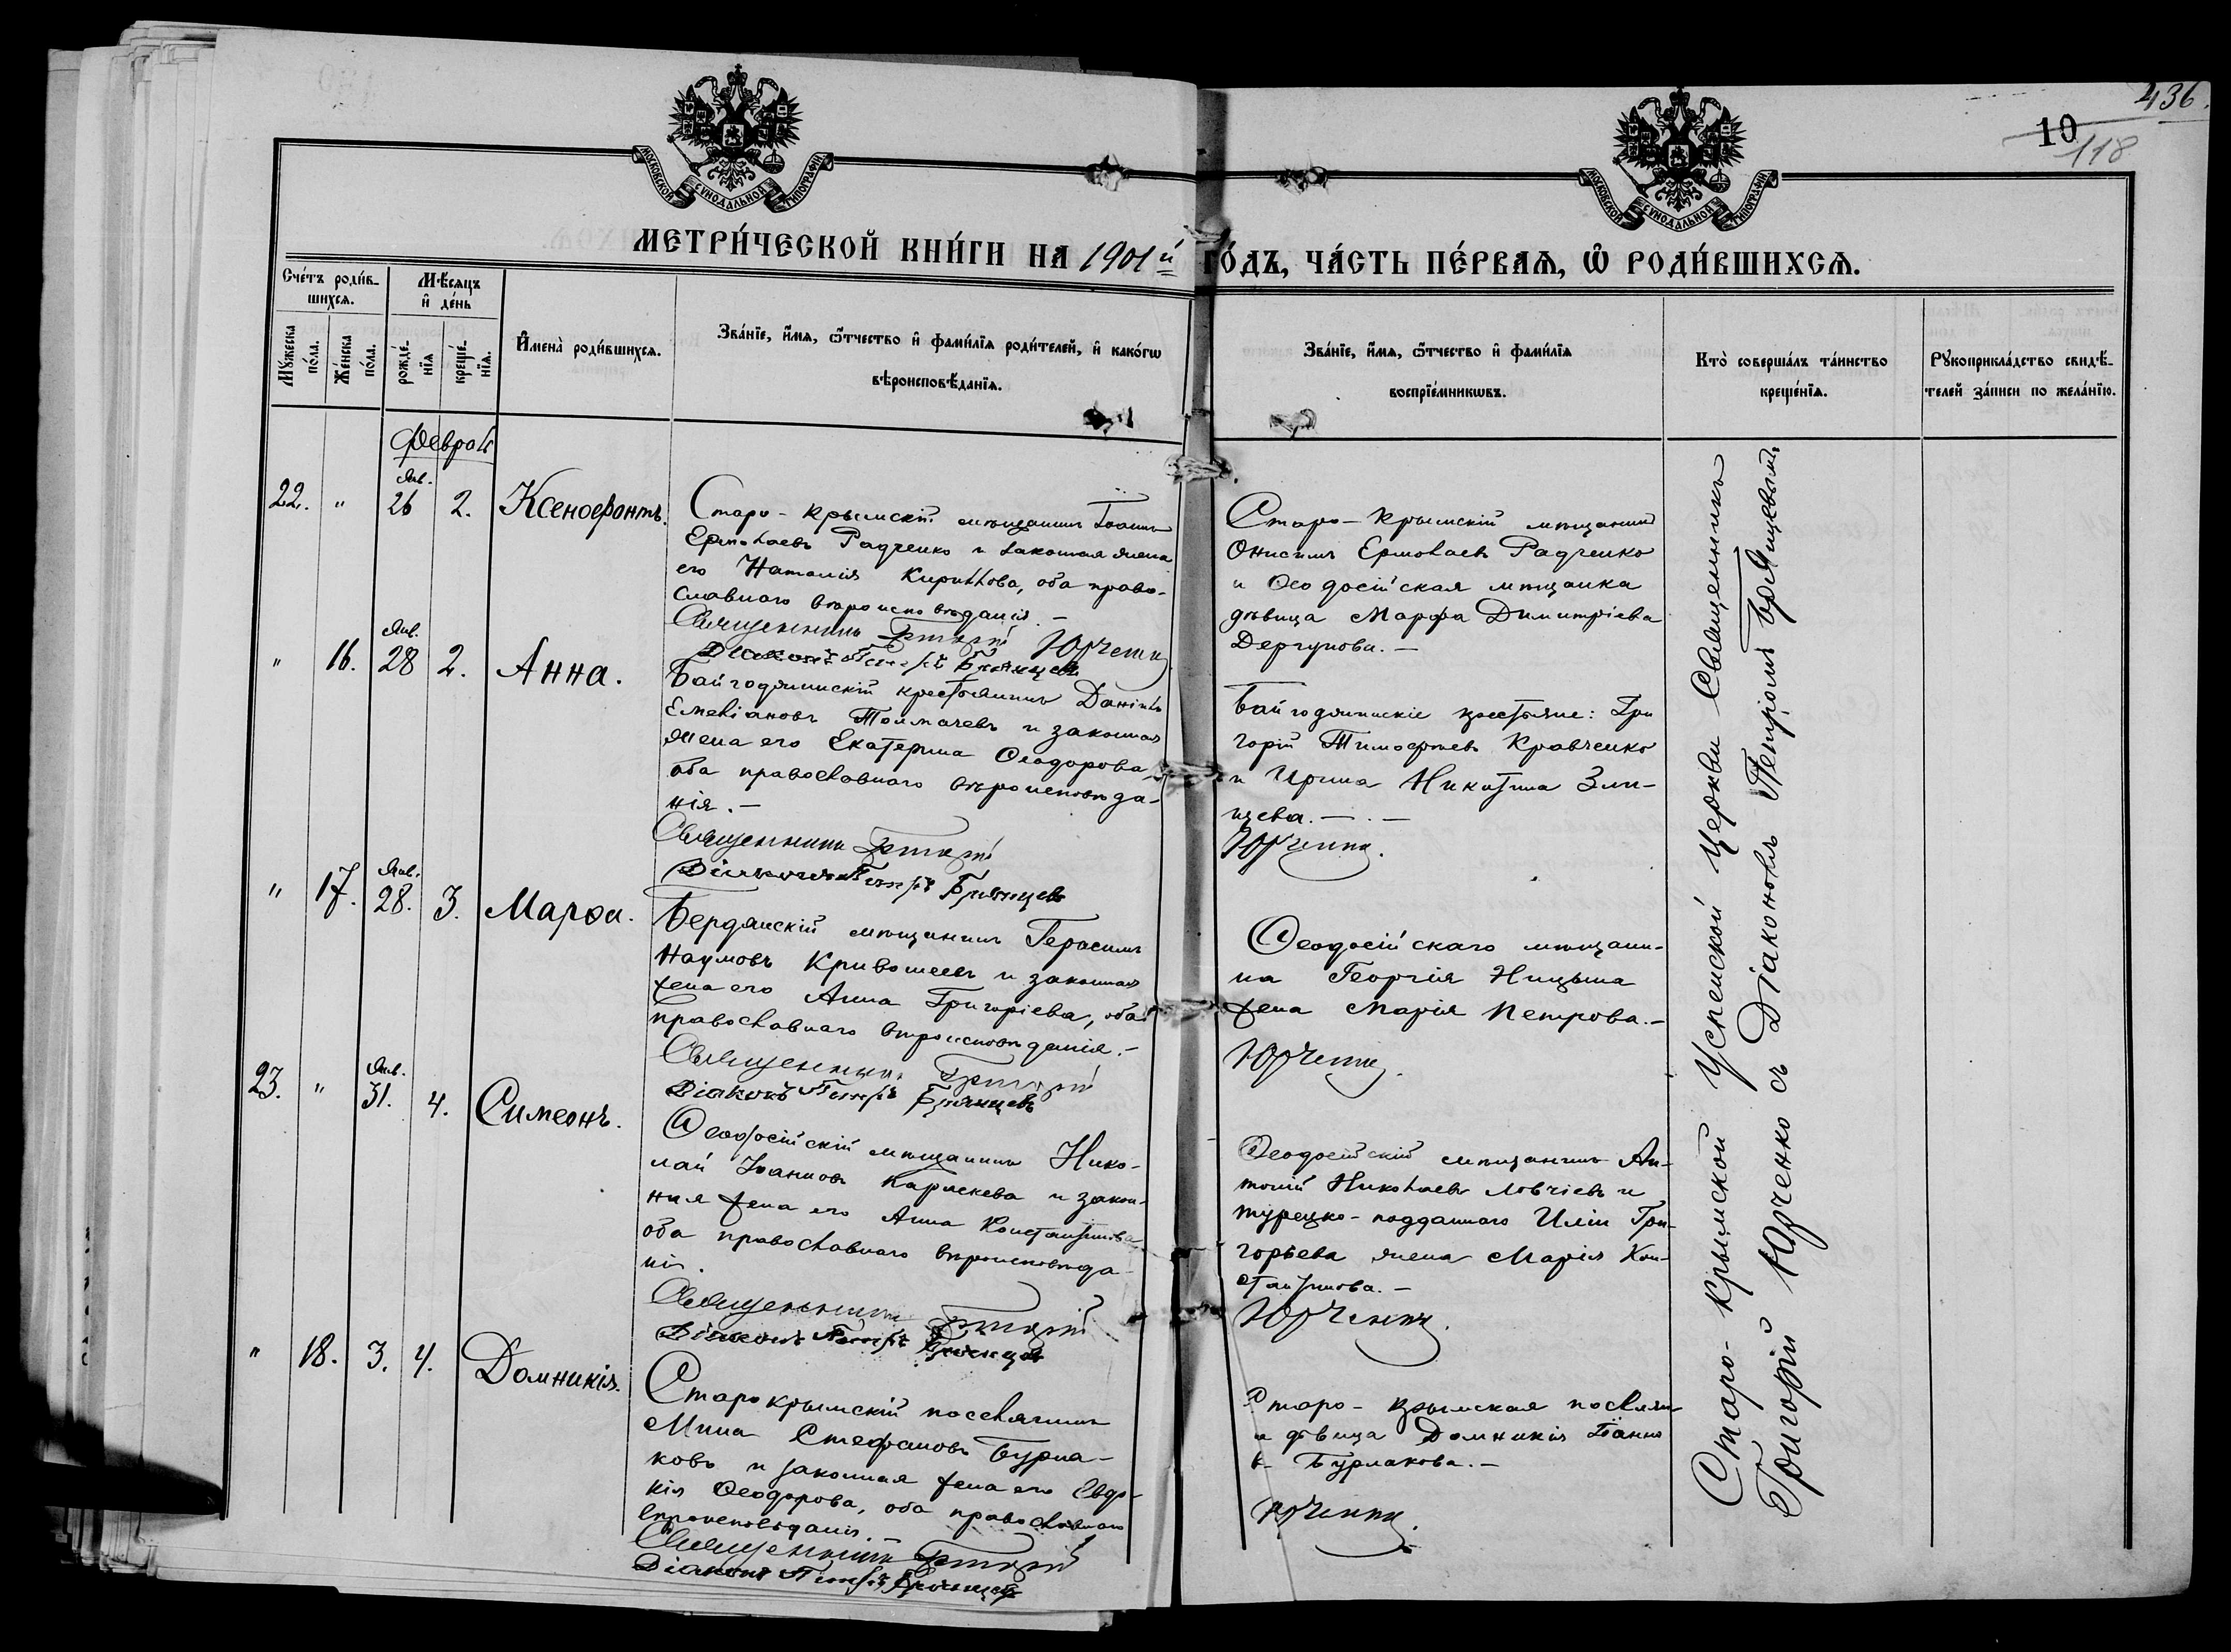 436.
10
118
МОСКОВСКОЙ СѴНОДАЛЬНОЙ ТИПОГРАФІИ
МОСКОВСКОЙ СѴНОДАЛЬНОЙ ТИПОГРАФІИ
МЕТРИ́ЧЕСКОЙ КНИ́ГИ НА 1901й ГО́ДЪ, ЧА́СТЬ ПЕ́РВАЯ, Ѿ РОДИ́ВШИХСЯ.
Сче́тъ роди́в-
шихся.
Мꙋ́жеска по́ла.
Же́нска по́ла.
Мѣ́сяцъ
и҆ де́нь
рожде́-
нїя
креще́-
нїя.
И҆мена̀ роди́вшихся.
Зва́нїе, и҆́мя, ѻ҆́тчество и҆ фами́лїя роди́телей, и҆ како́гѡ
вѣроисповѣ́данїя.
Зва́нїе, и҆́мя, ѻ҆́тчество и҆ фами́лїя
воспрїе́мникѡвъ.
Кто̀ соверша́лъ та́инство
креще́нїя.
Рꙋкоприкла́дство свидѣ́-
телей за́писи по жела́нїю.
Феврал
22. " Янв. 26 2. Ксенофонтъ.
Старо-Крымскій мѣщанинъ Іоаннъ
Ермолаевъ Радченко и законная жена
его Наталія Кириллова, оба право-
славнаго вѣроисповѣданія. –
Священникъ Григорій Юрченко
Діаконъ Петръ Брянцевъ
Старо-Крымскій мѣщанинъ
Онисимъ Ермолаевъ Радченко
и Ѳеодосійская мѣщанка
дѣвица Марфа Димитріева
Дергунова. –
" 16. Янв. 28 2. Анна.
крестьянинъ Даніилъ
Емеліановъ Толмачевъ и законная
жена его Екатерина Ѳеодорова
оба православнаго вѣроисповѣда-
нія. –
Священникъ Григорій
Діаконъ Петръ Брянцевъ
крестьяне: Гри
горій Тимофѣевъ Кравченко
и Ирина Никитина
Юрченко.
" 17. Янв. 28. 3. Марѳа.
Бердянскій мѣщанинъ Герасимъ
Наумовъ Кривошеевъ и законная
жена его Анна Григоріева, оба
православнаго вѣроисповѣданія. –
Священникъ Григорій
Діаконъ Петръ Брянцевъ
Ѳеодосійскаго мѣщани-
на Георгія Ницына
жена Марія Петрова. –
Юрченко.
23. " Янв. 31. 4. Симеонъ.
Ѳеодосійскій мѣщанинъ Нико-
лай Іоанновъ и закон-
ная жена его Анна Константинова
оба православнаго вѣроисповѣда-
нія.
Священникъ Григорій
Діаконъ Петръ Брянцевъ
Ѳеодосійскій мѣщанинъ Ан-
тоній Николаевъ Ловчіевъ и
турецко-подданнаго Иліи Гри-
горьева жена Марія Кон-
стантинова. –
Юрченко.
" 18. 3. 4. Домникія.
Старокрымскій поселянинъ
Мина Стефановъ Бурла-
ковъ и законная жена его Евдо-
кія Ѳеодорова, оба православнаго
вѣроисповѣданія. –
Священникъ Григорій
Діаконъ Петръ Брянцевъ
Старо-крымская поселян
и дѣвица Домникія
Бурлакова. –
Юрченко.
Старо-Крымской Успенской Церкви Священникъ
Григорій Юрченко съ Діакономъ Петромъ Брянцевымъ.